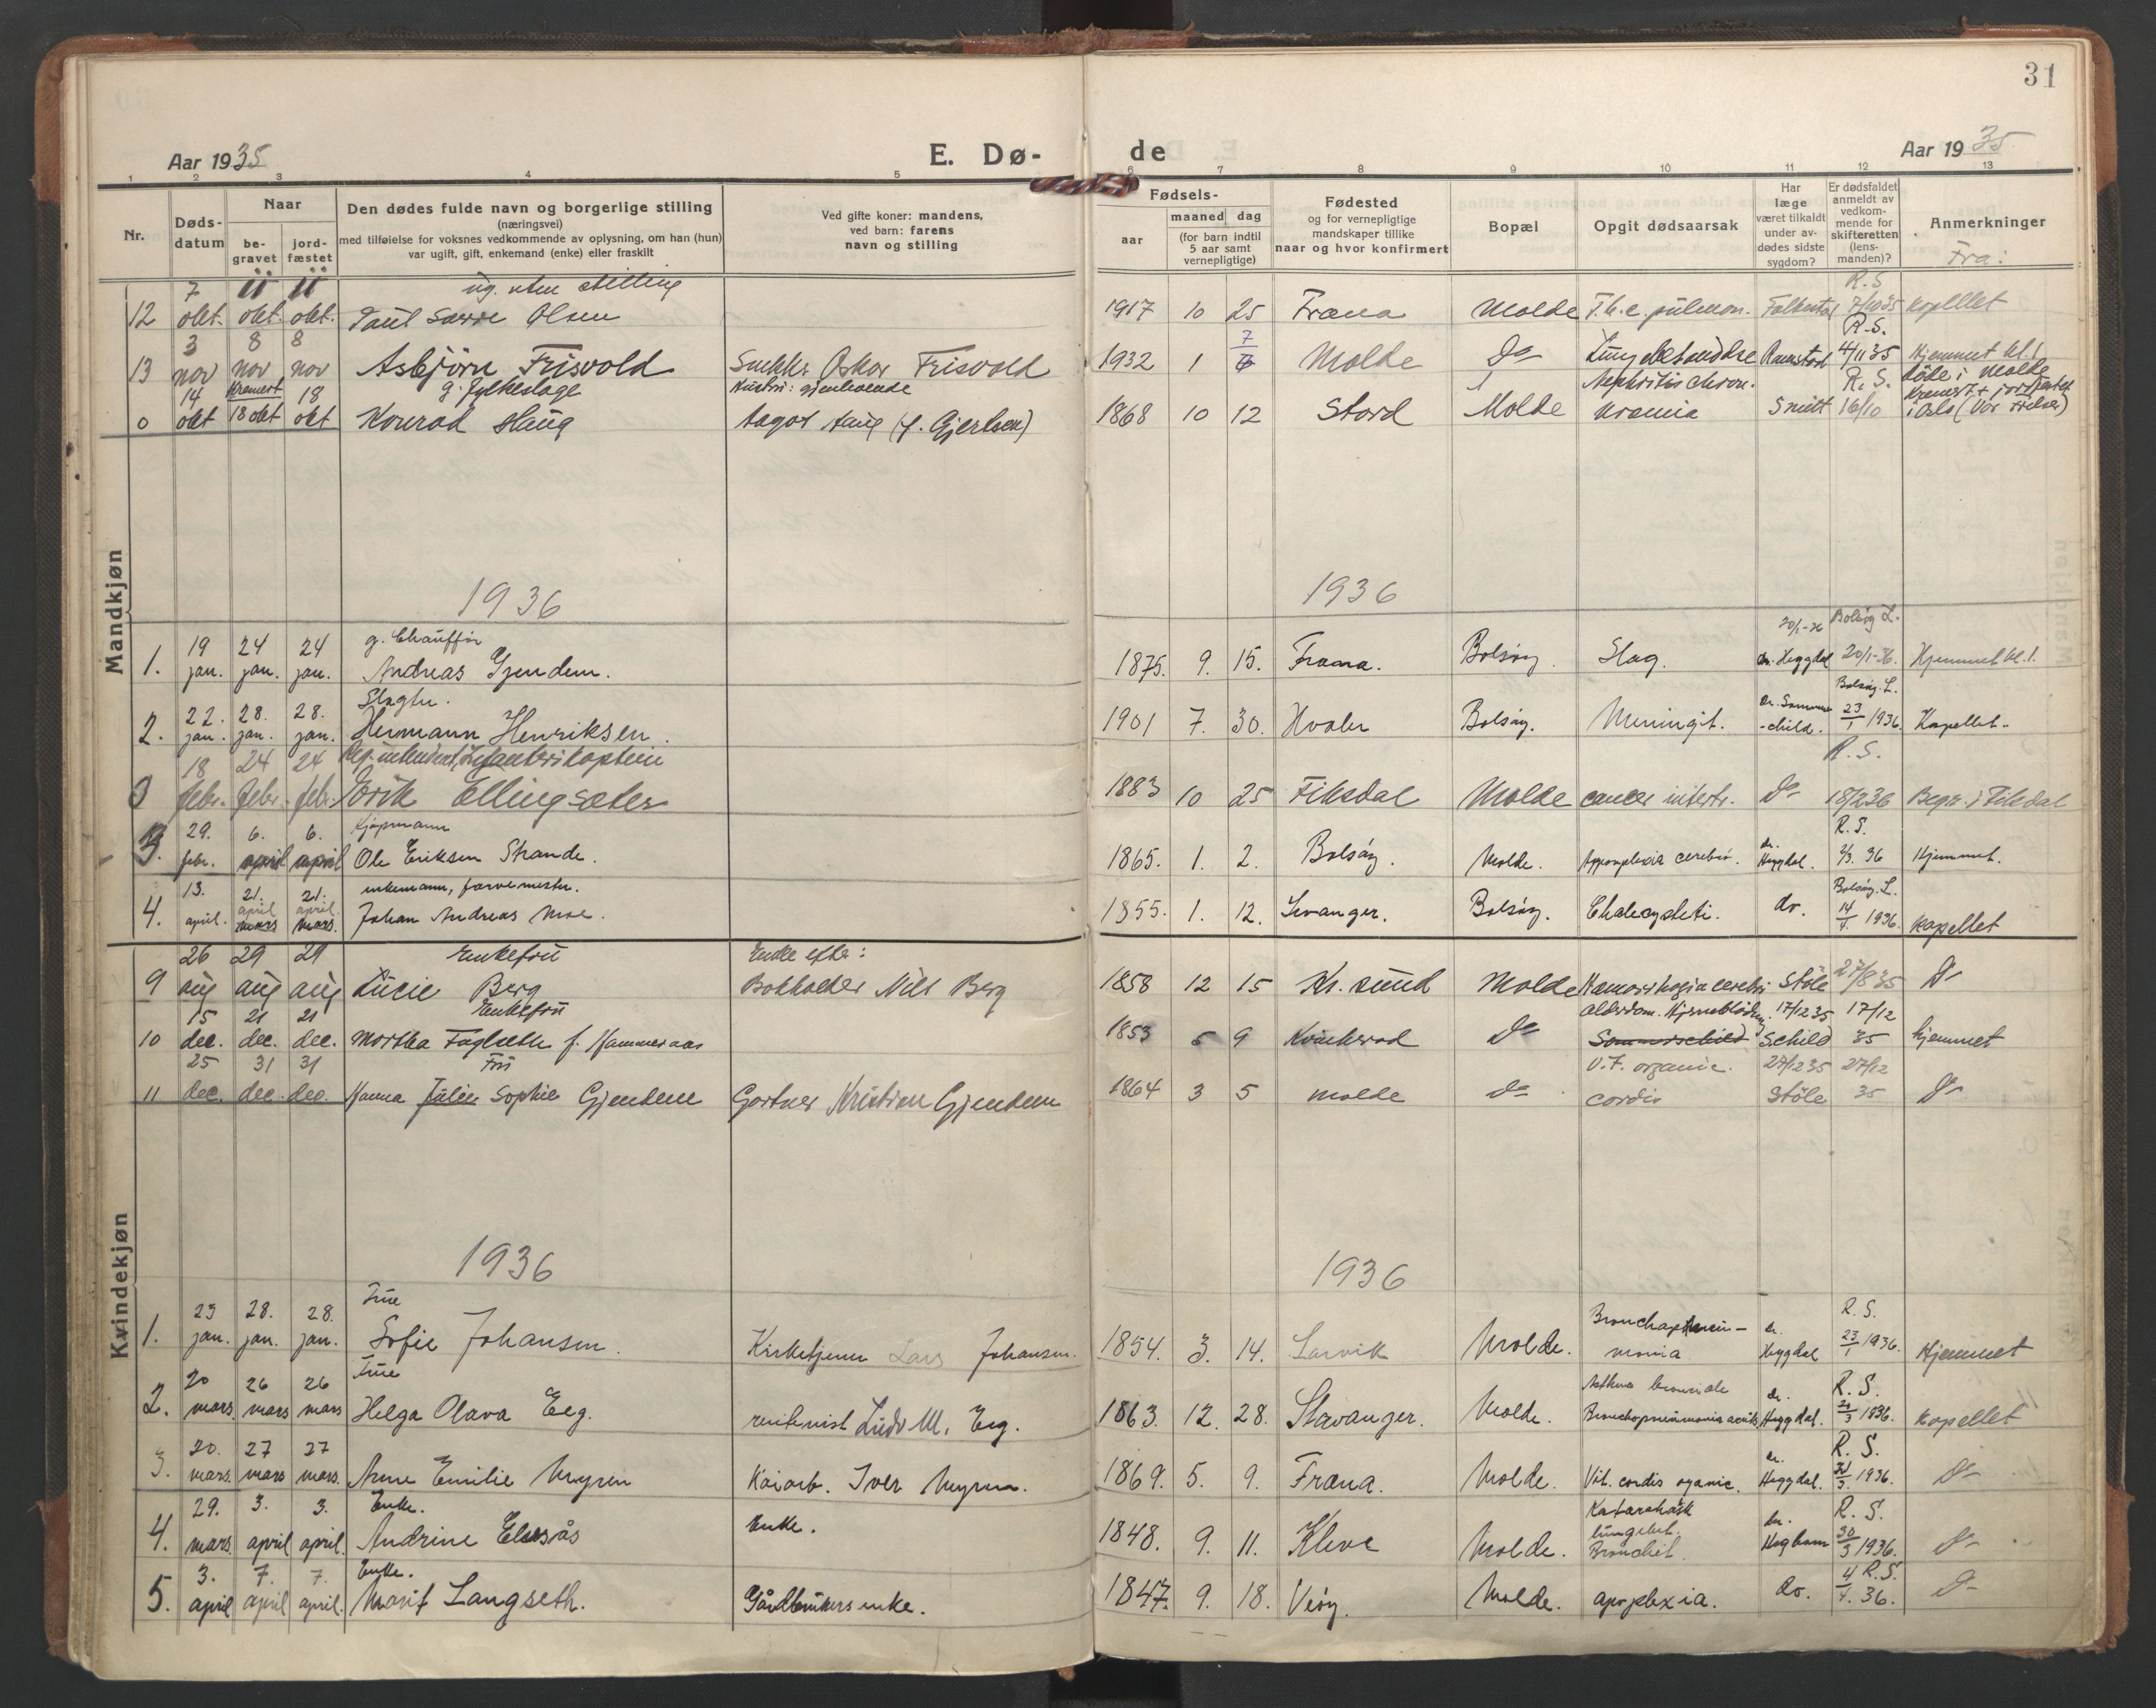 31
Aar 1935
E. Dø-
de
Aar 1935
1 2 3 4 5 6 7 8 9 10 11 12 13
Nr.
Døds-
datum
Naar
be-
gravet
jord-
fæstet
Den dødes fulde navn og borgerlige stilling
(næringsvei)
med tilføielse for voksnes vedkommende av oplysning, om han (hun)
var ugift, gift, enkemand (enke) eller fraskilt
Ved gifte koner: mandens,
ved barn: farens
navn og stilling
Fødsels-
aar
maaned dag
(for barn indtil
5 aar samt
vernepligtige)
Fødested
og for vernepligtige
mandskaper tillike
naar og hvor konfirmert
Bopæl
Opgit dødsaarsak
Har
læge
været tilkaldt
under av-
dødes sidste
sygdom?
Er dødsfaldet
anmeldt av
vedkom-
mende for
skifteretten
(lens-
manden)?
Anmerkninger
Fra:
Mandkjøn
7 11 11 ug. uten stilling R.S
12 okt. okt. okt. Paul Olsen 1917 10 25 Fræna Molde T.b.c. pulmon. 7/10 35 kapellet
3 8 8 7 R.S.
13 nov nov nov Asbjörn Frisvold Snekker Oskar Frisvold 1932 1 6 Molde Do Lungebetendelse 4/11 35 Hjemmet kl. 1
14 Kremert 18 g. fylkeslage Hustru: gjenlevende Nephritis chron. R. S. döde i Molde
0 okt 18 okt okt Konrad Haug Aagot Haug (f. Gjertsen) 1868 10 12 Stord Molde uremia Smitt 16/10 i Oslo (Vor Frelser)
1936
1936
19 24 24 g. Chauffør 20/1-36 Bolsøy L.
1. jan. jan. jan. Andreas Gjendem. 1875. 9. 15. Fræna. Bolsøy. Slag. dr. Heggdal 20/1-36. Hjemmet kl. 1.
22. 28. 28. Slagter. Dr. Sommer Bolsøy. L.
2. jan. jan. jan. Hermann Henriksen. 1901 7. 30. Hvaler Bolsøy. Meningit. -schild. 23/1 1936. Kapellet.
18 24 24 Reg. intendent, Infanterikaptein R.S.
0 febr. febr. febr. Eirik Ellingsæter 1883 10 25 Fiksdal Molde cancer intestr. Do 18/2 36 Begr. i Fiksdal
29. 6. 6. Kjøpmann dr. R.S.
3. febr. april april Ole Eriksen Strande. 1865. 1. 2. Bolsøy. Molde. Appoplexia cerebri. Heggdal. 2/3. 36 Hjemmet.
13. 21. 21. enkemann, farvemester. Bolsøy. L.
april april
4. april. mars mars. Johan Andreas Moe. 1855. 1. 12. Levanger. Bolsøy. do. 14/4. 1936. kapellet
Kvindekjøn
26 29 29 Enkefru Enke efter:
9 aug aug aug Lucie Berg Bokholder Nils Berg 1858 12 15 Kr. sund Molde Hæmorrhagia cerebri Støle 27/8 35 Do
15 21 21 Enkefru alderdom. Hjerneblödning 17/12 35 17/12
10 dec. dec. dec. Martha Faglseth f. Hammeraas 1853 5 9 Do Sommerschild Schild 35 hjemmet
25 31 31 Fru V.F. organic. 27/12 35 27/12
11 dec. dec. dec. Hanna Julie Sophie Gjendem Gartner Kristian Gjendem 1864 3 5 molde do cordis Støle 35 Do
1936
1936
23 28. 28. Frue Bronchopneu- dr. R.S.
1. jan. jan. jan. Sofie Johansen. Kirketjener Lars Johansen. 1854. 3. 14. Larvik Molde. monia Heggdal 23/1 1936. Hjemmet
20 26 26 Frue Asthma bronciale dr. R. S.
2. mars. mars mars Helga Olava Eeg. rentenist Ludv M. Eeg. 1863. 12. 28. Stavanger. Molde. Bronchopneumonia acuta Heggdal. 21/3 1936. kapellet
20. 27 27 dr. R. S.
3. mars. mars mars. Anne Emilie Myren Kaiarb. Iver Myren. 1869. 5. 9. Fræna. Molde. Vit. cordis oganic. Heggdal. 21/3. 1936. Do
29. 3. 3. Enke. Katarahalsk R. S.
4. mars. april april. Andrine Elvsås Enke. 1848. 9. 11. Kleve Molde. lungebet. Bronchit. dr. 30/3 1936. Do
3. 7. 7. Enke. R.S.
5. april april april. Marit Langseth. Gårdbrukers enke. 1847. 9. 18. Veøy. Molde. apoplexia. do. 4/4. 36. Do